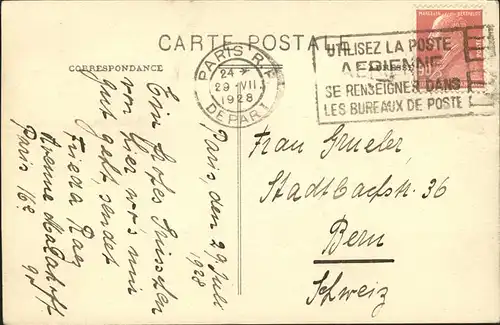 CARTE POSTALE
CORRESPONDANCE
ADRESSE
MARCELIN BERTHELOT
90
PARIS R.P.
24
29 VII
1928
DEPART
UTILISEZ LA POSTE
AERIENNE
SE RENSEIGNER DANS
LES BUREAUX DE POSTE
Paris, den 29 Juli
1928
Ein
von hier wo's mir
gut geht, sendet
Frieda
Avenue Malakoff
Paris 16e
Frau Grueler
Stadtbachstr. 36
Bern
Schweiz